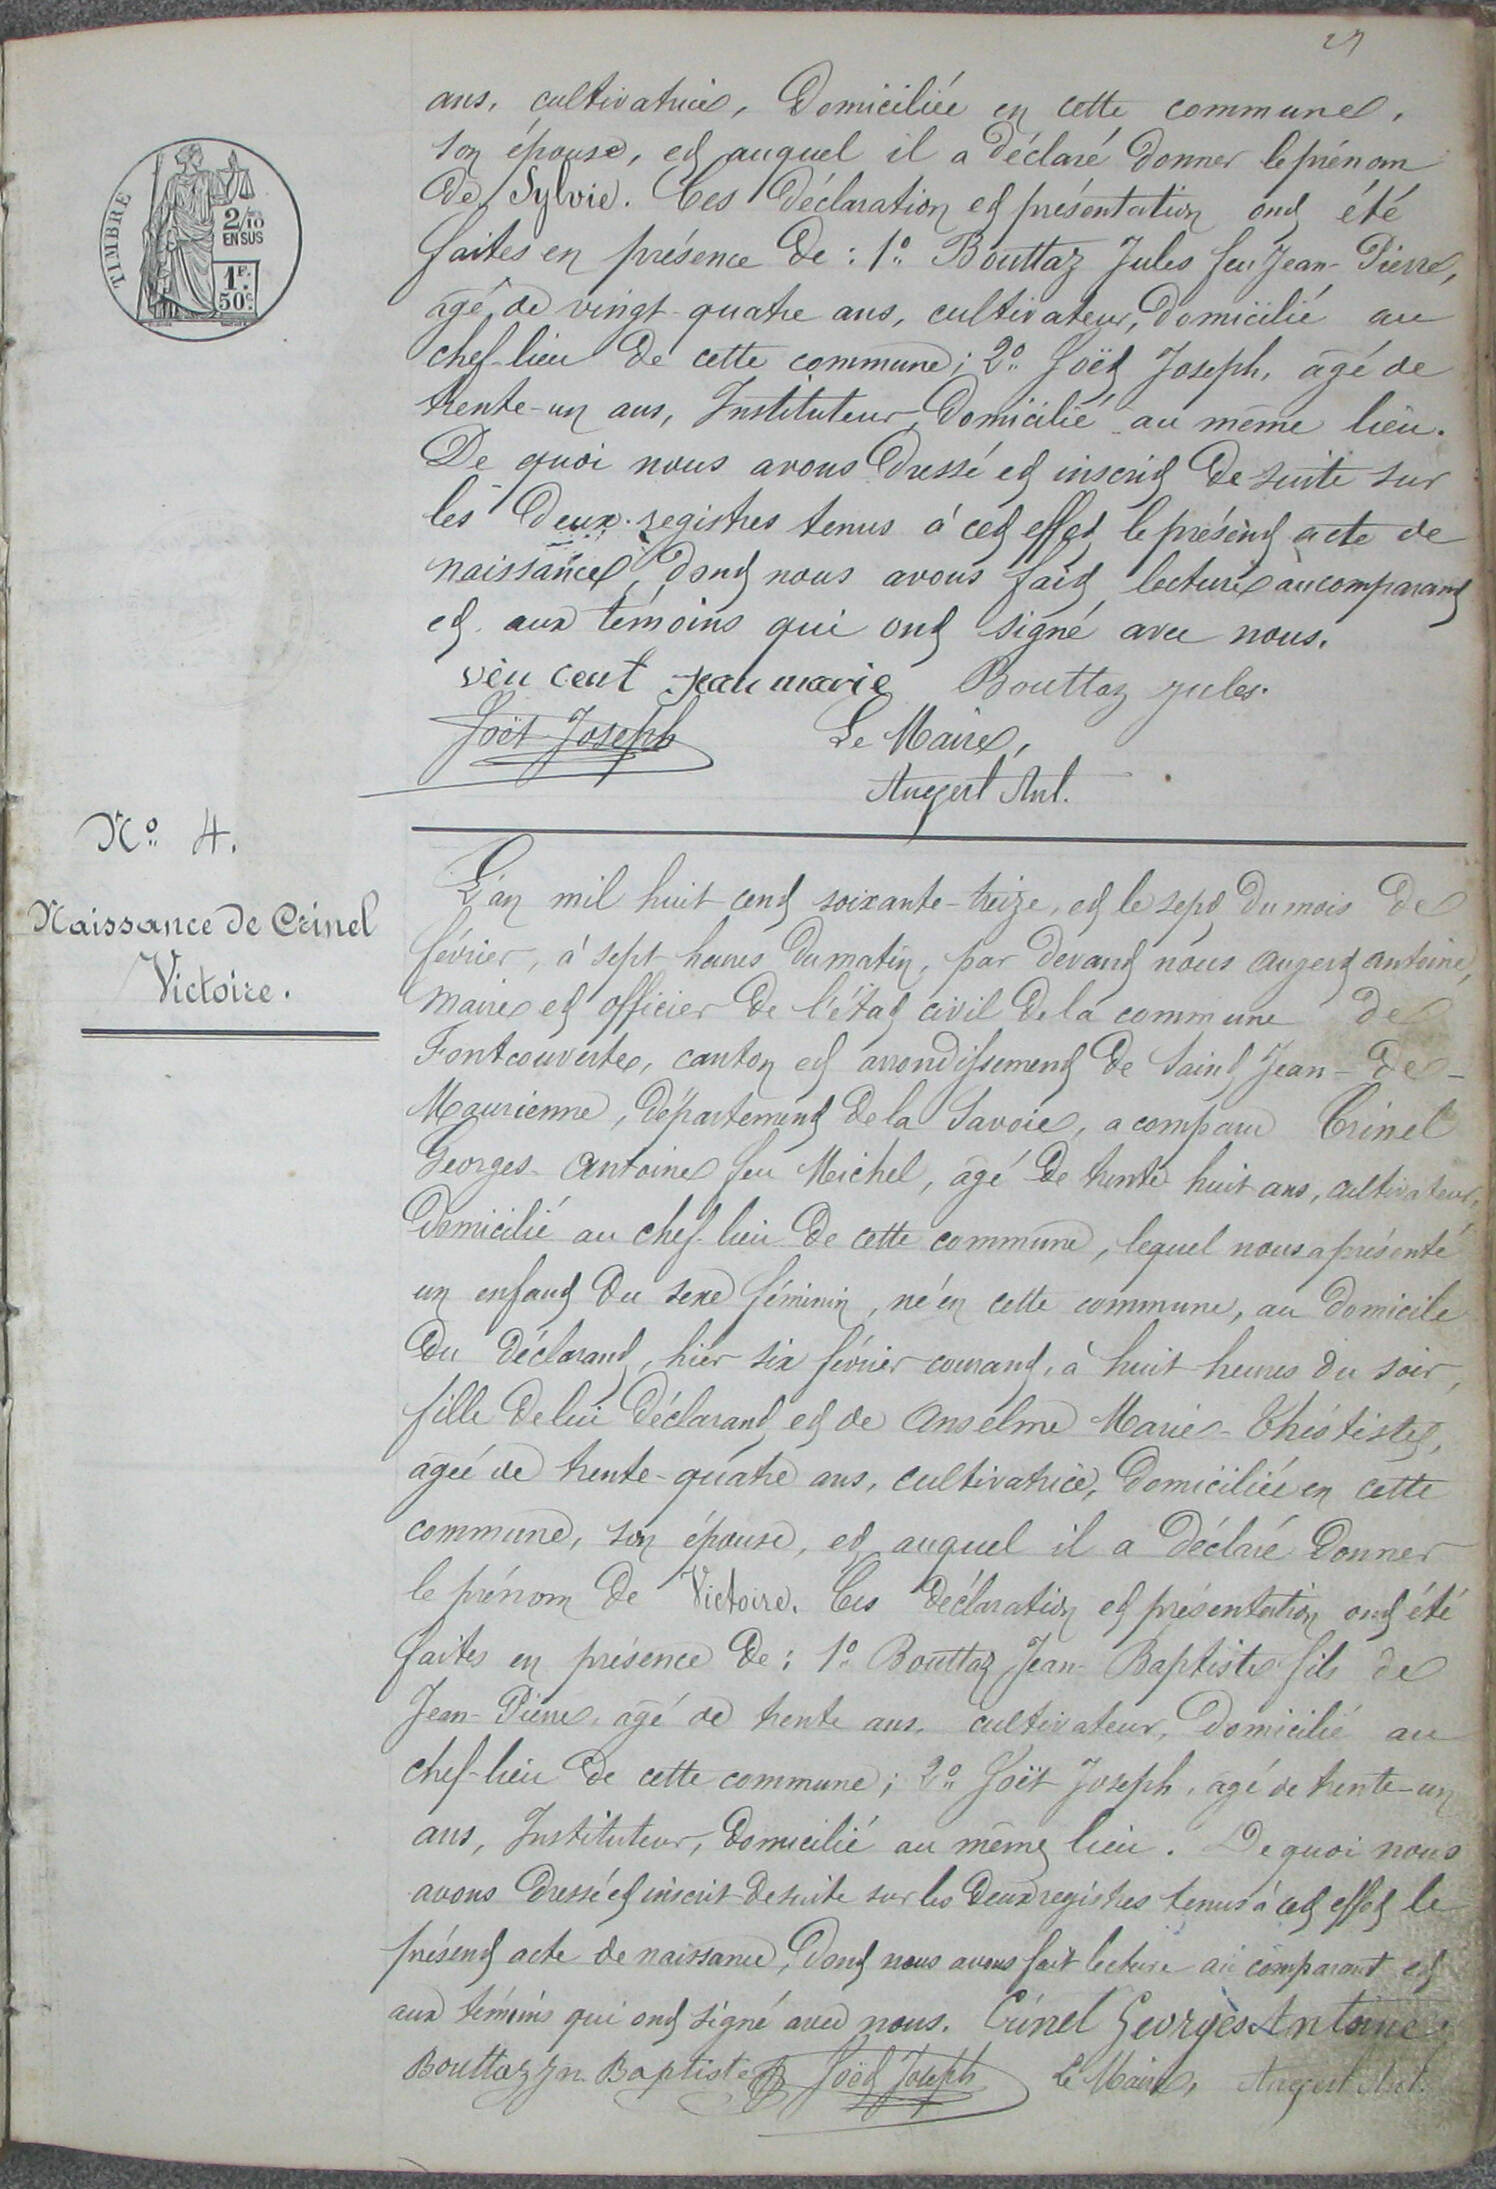 ans, cultivatrice, Domiciliée en cette commune,
son épouse, et auquel il a déclaré donner le prénom
de Sylvie. Ces déclaration et présentation ont été
faites en présence de : 1° Bouttaz Jules feu Jean-Pierre,
âgé de vingt-quatre ans, cultivateur, domicilié au
chef-lieu de cette commune ; 2° Joët Joseph, âgé de
trente-un ans, Instituteur, Domicilié au même lieu.
De quoi nous avons Dressé et inscrit de suite sur
les Deux registres tenus à cet effet le présent acte de
naissance, dont nous avons fait lecture au comparant
et aux témoins qui ont signé avec nous.
vin cent jean marie Bouttaz jules.
Joët Joseph Le Maire,
Augert Ant.
TIMBRE
2/10
EN SUS
1F.
50c.
N° 4.
Naissance de Crinel
Victoire.
L'an mil huit cent soixante-treize, et le sept du mois de
février, à sept heures du matin, par devant nous Augert Antoine,
Maire et officier de l'état civil de la commune de
Fontcouverte, canton et arrondissement de Saint Jean-de-
Maurienne, Département de la Savoie, a comparu Crinel
Georges Antoine feu Michel, âgé de trente huit ans, cultivateur,
Domicilié au chef-lieu de cette commune, lequel nous a présenté
un enfant du sexe féminin, né en cette commune, au domicile
du Déclarant, hier six février courant, à huit heures du soir,
fille de lui Déclarant et de Anselme Marie-Théotiste,
âgée de trente-quatre ans, cultivatrice, Domiciliée en cette
commune, son épouse, et auquel il a déclaré Donner
le prénom de Victoire. Ces déclaration et présentation ont été
faites en présence de : 1° Bouttaz Jean-Baptiste fils de
Jean-Pierre, âgé de trente ans, cultivateur, Domicilié au
chef-lieu de cette commune ; 2° Joët Joseph, âgé de trente-un
ans, Instituteur, domicilié au même lieu. De quoi nous
avons dressé et inscrit de suite sur les Deux registres tenus à cet effet le
présent acte de naissance, Dont nous avons fait lecture au comparant et
aux témoins qui ont signé avec nous. Crinel Georges Antoine.
Bouttaz Jn. Baptiste Joët Joseph Le Maire, Augert Ant.